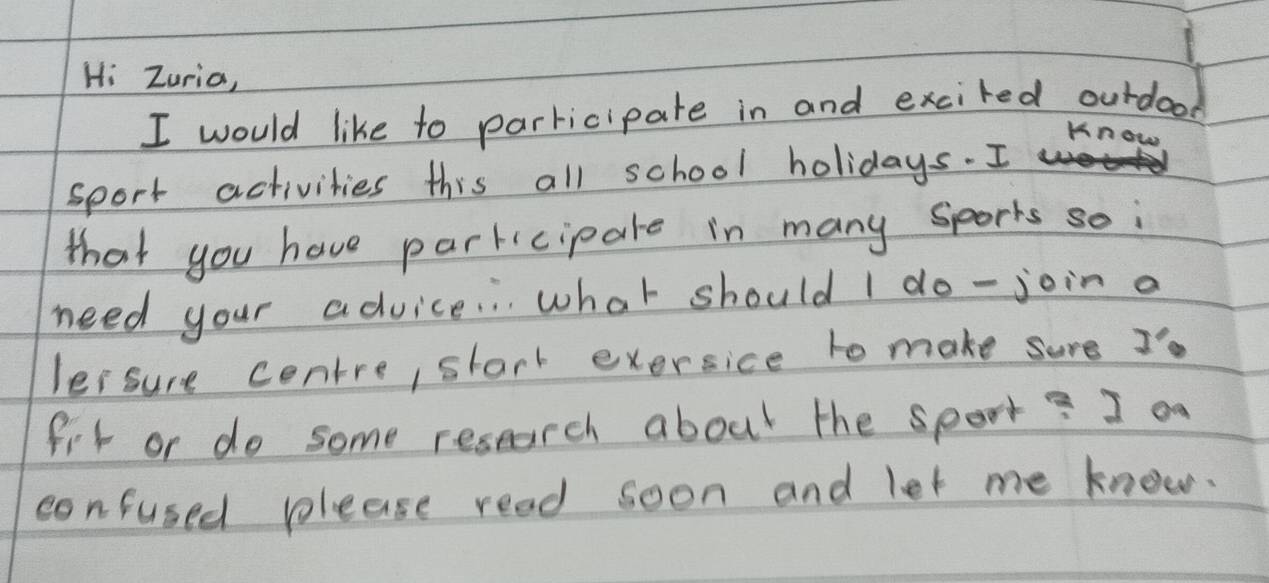 Hi Zuria,
I would like to participate in and excited outdoor
sport activities this all school holidays. I know
that you have participate in many sports so i
need your advice... what should I do - join a
leisure centre, start exersice to make sure I'm
fit or do some research about the sport? I am
confused please read soon and let me know.